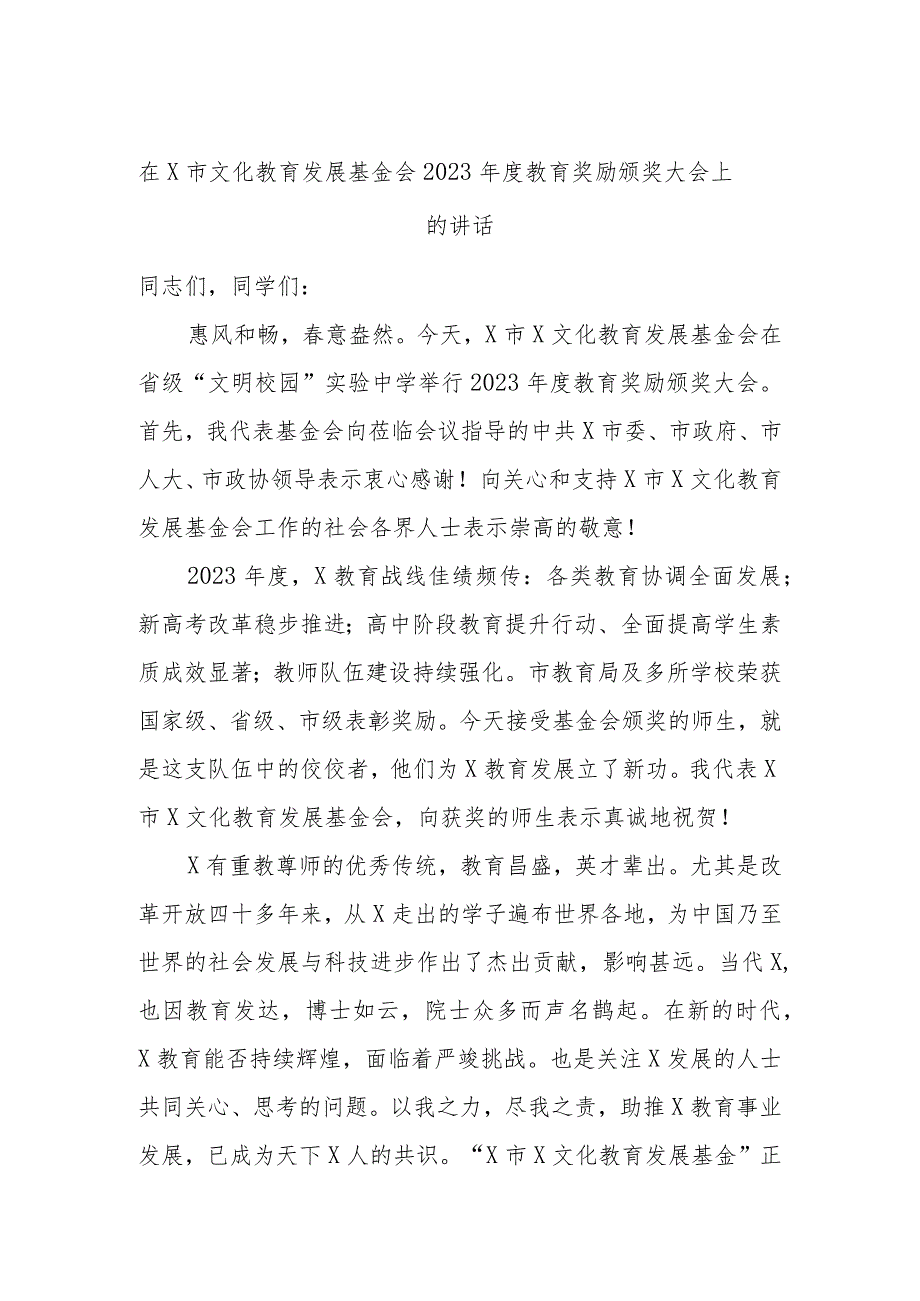 在 X 市文化教育发展基金会 2023 年度教育奖励颁奖大会上
的讲话
同志们，同学们：
惠风和畅，春意盎然。今天，X 市 X 文化教育发展基金会在
省级“文明校园”实验中学举行 2023 年度教育奖励颁奖大会。
首先，我代表基金会向莅临会议指导的中共 X 市委、市政府、市
人大、市政协领导表示衷心感谢！向关心和支持 X 市 X 文化教育
发展基金会工作的社会各界人士表示崇高的敬意！
2023 年度，X 教育战线佳绩频传：各类教育协调全面发展；
新高考改革稳步推进；高中阶段教育提升行动、全面提高学生素
质成效显著；教师队伍建设持续强化。市教育局及多所学校荣获
国家级、省级、市级表彰奖励。今天接受基金会颁奖的师生，就
是这支队伍中的佼佼者，他们为 X 教育发展立了新功。我代表 X
市 X 文化教育发展基金会，向获奖的师生表示真诚地祝贺！
X 有重教尊师的优秀传统，教育昌盛，英才辈出。尤其是改
革开放四十多年来，从 X 走出的学子遍布世界各地，为中国乃至
世界的社会发展与科技进步作出了杰出贡献，影响甚远。当代 X，
也因教育发达，博士如云，院士众多而声名鹊起。在新的时代，
X 教育能否持续辉煌，面临着严竣挑战。也是关注 X 发展的人士
共同关心、思考的问题。以我之力，尽我之责，助推 X 教育事业
发展，已成为天下 X 人的共识。“X 市 X 文化教育发展基金”正